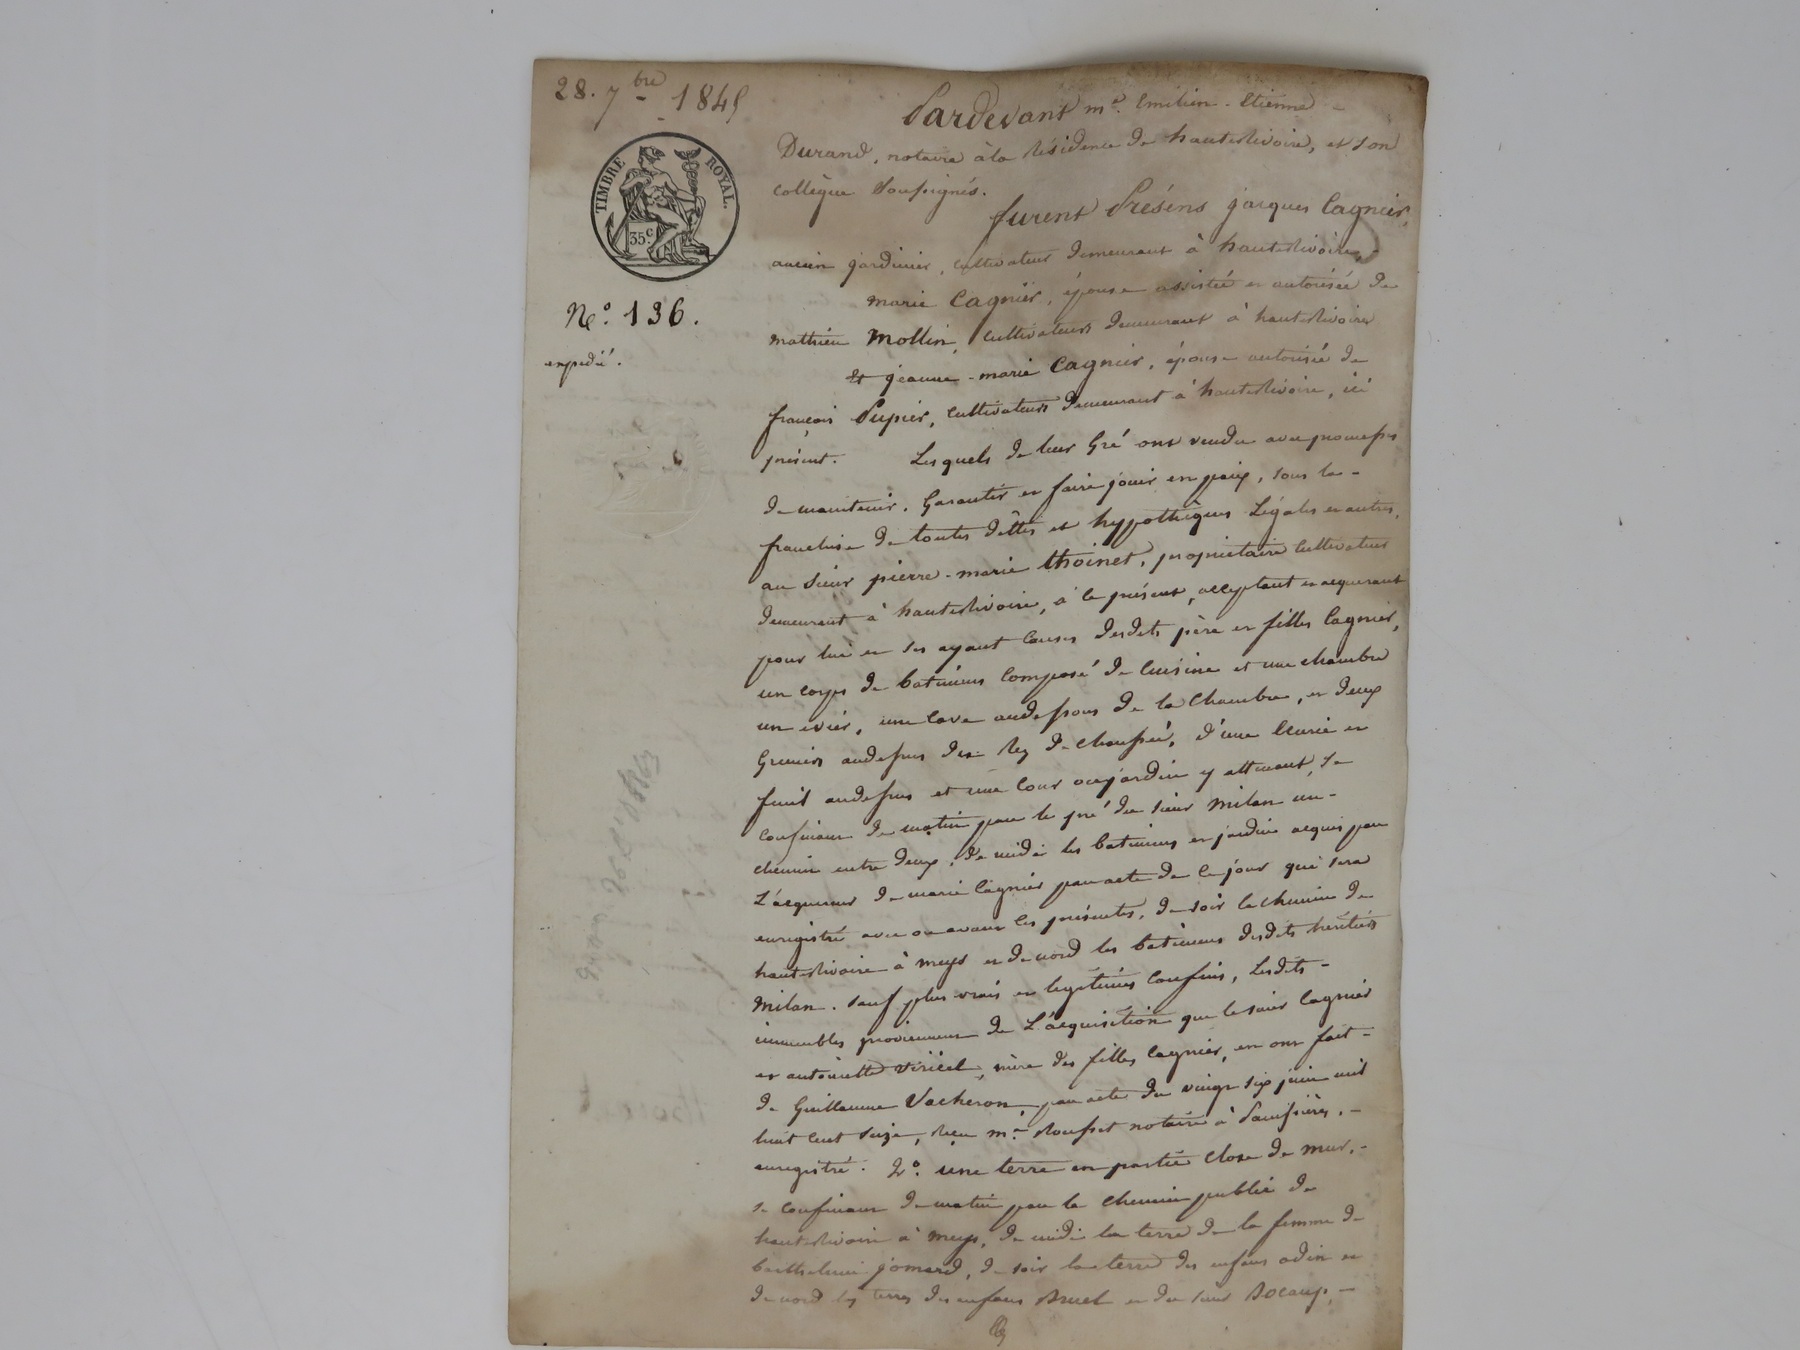 28. 7bre 1845
TIMBRE ROYAL.
35c
No. 136.
expédié.
Pardevant me. Emilien - Etienne -
Durand, notaire à la Résidence de hauterivoire, et son
collègue Soussignés.
furent Présens jacques Cagnier,
ancien jardinier, cultivateur demeurant à hauterivoire,
marie Cagnier, épouse assistée et autorisée de
mathieu Mollin, cultivateurs demeurant à hauterivoire
Et jeanne-marie Cagnier, épouse autorisée de
françois Pupier, cultivateurs demeurant à hauterivoire, ici
présent. Lesquels de leur Gré ont vendu avec promesse
de maintenir, Garantir et faire jouir en paix, sous la -
franchise de toutes dettes et hyppothèques Légales et autres,
au Sieur pierre-marie thoinet, propriétaire cultivateur
demeurant à hauterivoire, à ce présent, acceptant et acquerant
pour lui et ses ayant causes desdits père et filles Cagnier,
un corps de batimens Composé de Cuisine et une chambre
un evier, une cave audessous de la Chambre, et deux
Greniers audessus des Rez de chaussée, d'une Ecurie et
fenil audessus et une Cour ou jardin y attenant, se
confinant de matin par le pré du sieur Milan un -
chemin entre deux, de midi les batimens et jardin acquis par
L'acquereur de marie Cagnier par acte de ce jour qui sera
enregistré avec ou avant les présentes, de soir le chemin de
hauterivoire à meys et de nord les batimens desdits héritiers
Milan. sauf plus vrais et legitimes Confins, Lesdits -
immeubles proviennent de L'acquisition que le sieur Cagnier
et antoinette Viricel, mère des filles Cagnier, en ont fait -
de Guillaume Vacheron, par acte du vingt six juin mil
huit cent seize, Reçu me. Rousset notaire à -
enregistré. 2o. une terre en partie Close de mur, -
se confinant de matin par le chemin public de
hauterivoire à meys, de midi la terre de la femme de
barthelemi jomard, de soir la terre des enfans odin et
de nord les terres des enfans Bruel et du sieur -